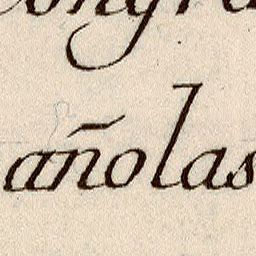 congra
añolas